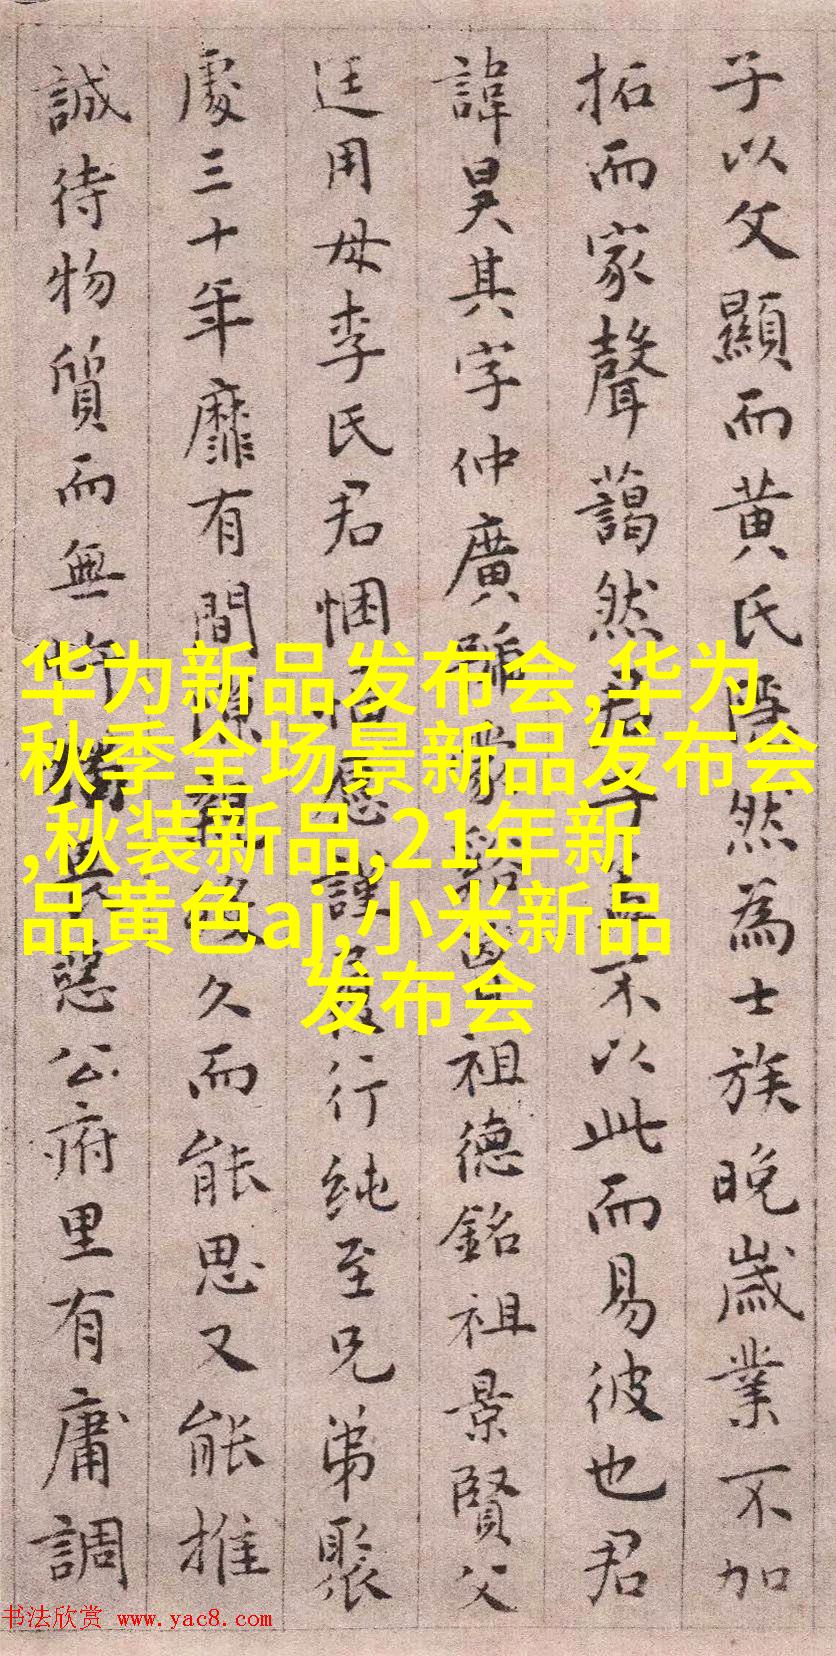 子以父顯而黄氏隱然為士族晚歲業不加
拓而家聲藹然君子不以此而易彼也君
諱昊其字仲廣號豁曾祖德銘祖景賢父
廷用母李氏君悃愊應謹行純至兄弟聚
處三十年靡有間隙親久而能思又能推
誠待物質而無詐公府里有庸調
华为新品发布会,华为
秋季全场景新品发布会
,秋装新品,21年新
品黄色aj,小米新品
发布会
书法欣赏 www.yac8.com